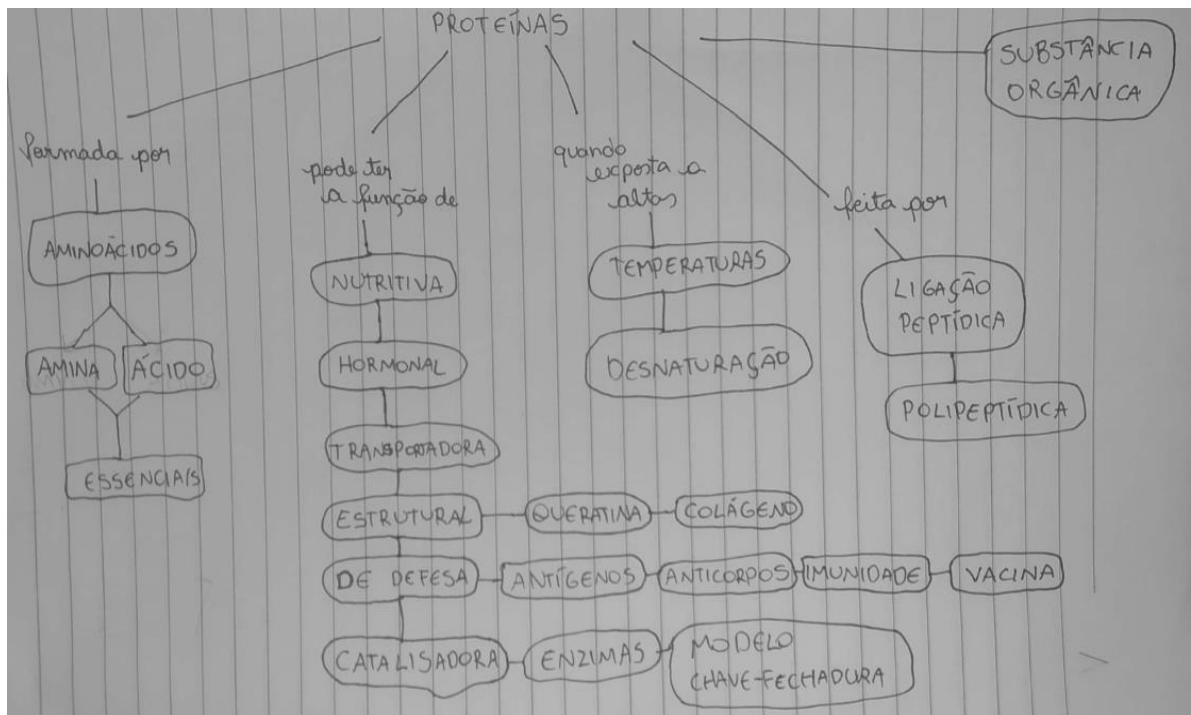 PROTEÍNAS
SUBSTÂNCIA
ORGÂNICA
formada por
AMINOÁCIDOS
AMINA
ÁCIDO
ESSENCIAIS
pode ter
a função de
NUTRITIVA
HORMONAL
TRANSPORTADORA
ESTRUTURAL
QUERATINA
COLÁGENO
DE DEFESA
ANTÍGENOS
ANTICORPOS
IMUNIDADE
VACINA
CATALISADORA
ENZIMAS
MODELO
CHAVE-FECHADURA
quando
exposta a
altas
TEMPERATURAS
DESNATURAÇÃO
feita por
LIGAÇÃO
PEPTÍDICA
POLIPEPTÍDICA